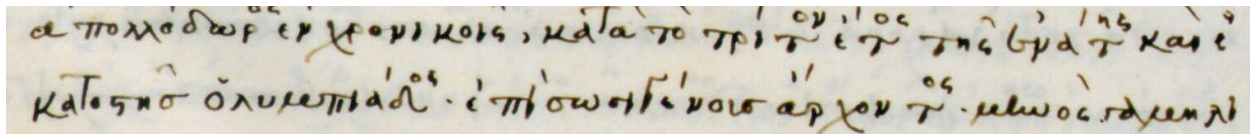 ἀπολλόδωρος ἐν χρονικοῖς, κατὰ τὸ τρίτον ἔτος τῆς ἐνάτης καὶ ἑ
κατοστῆς ὀλυμπιάδος· ἐπὶ σωσιγένους ἄρχοντος· μηνὸς γαμηλι